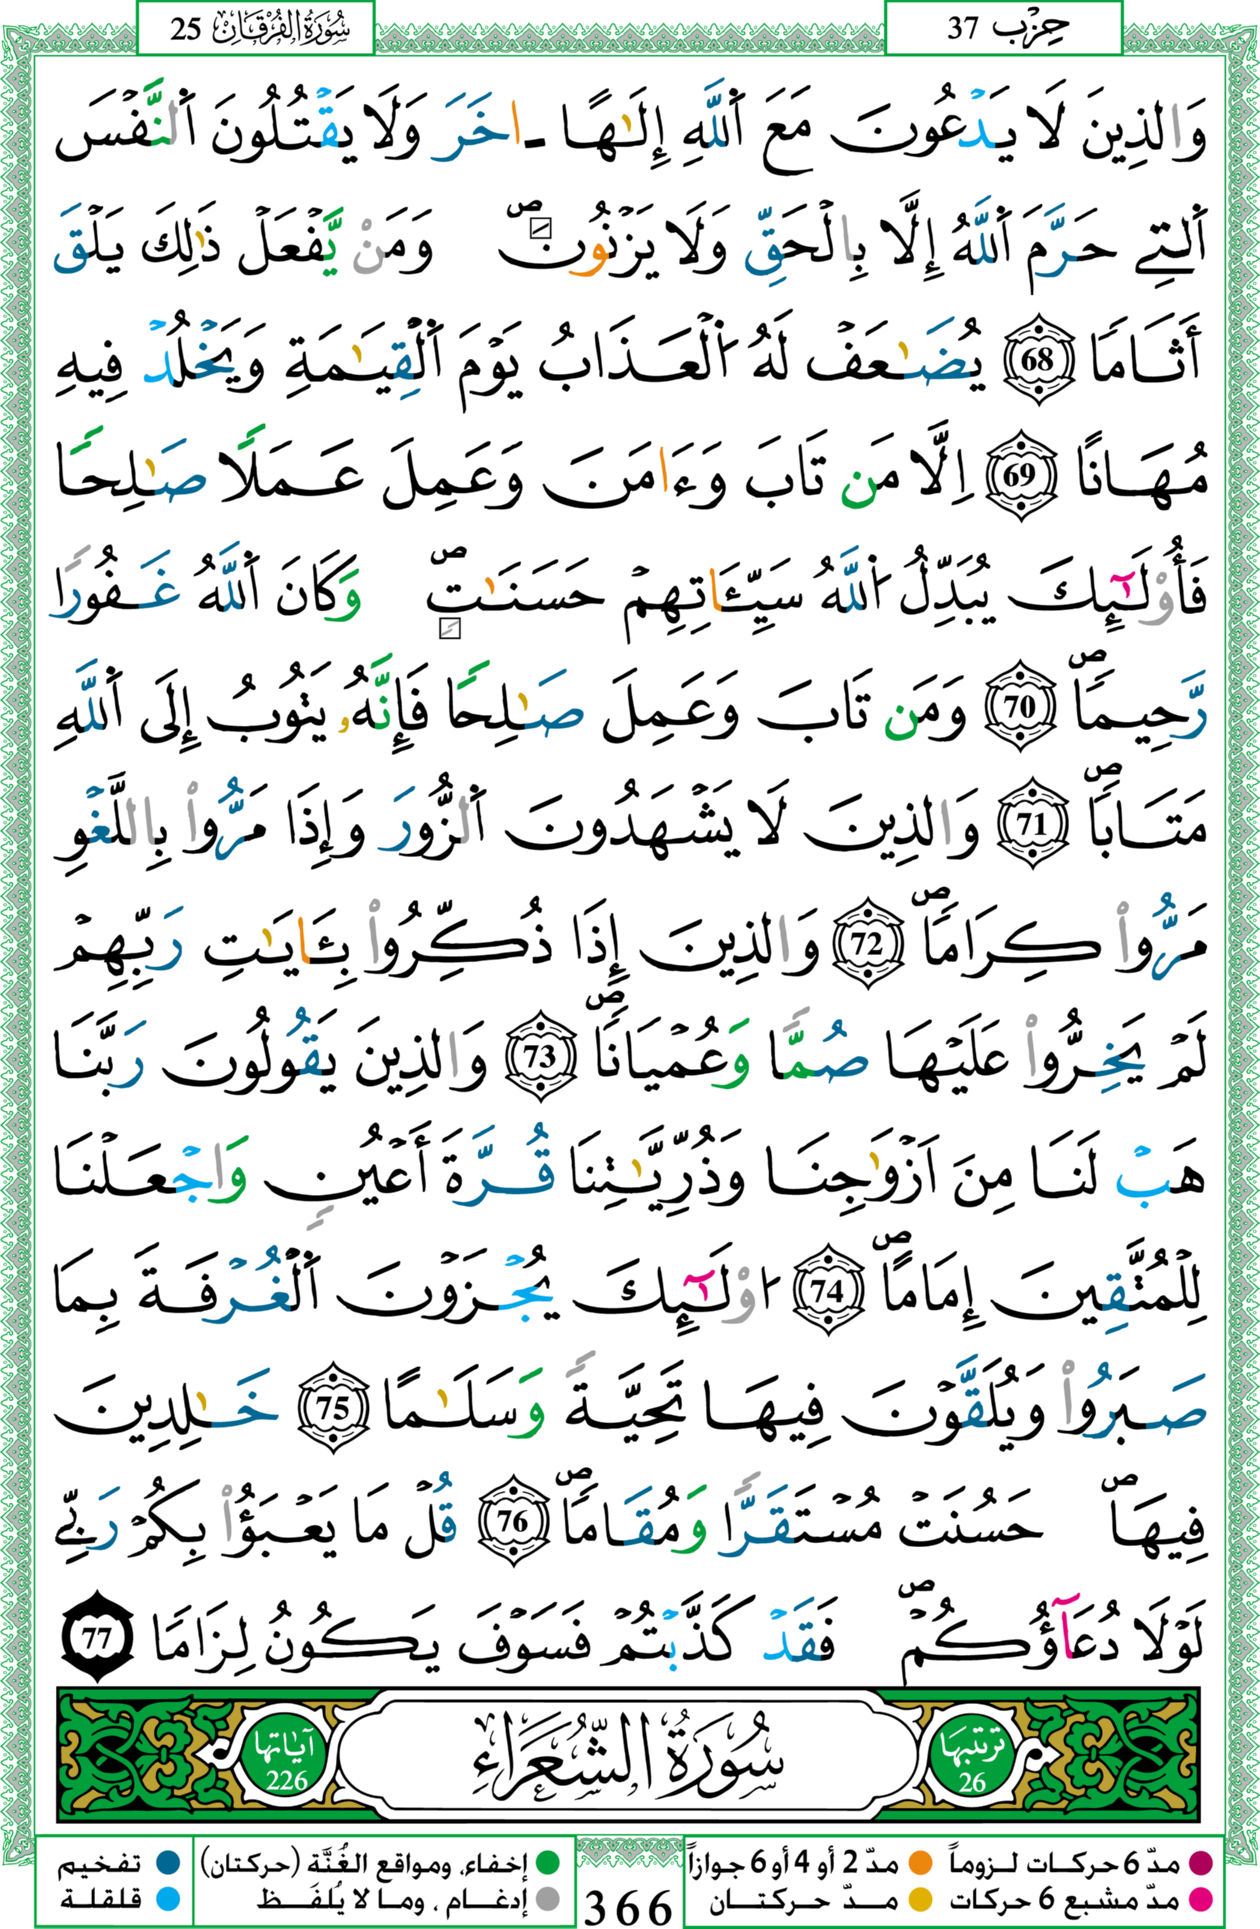 سُورَةُ الفُرْقَانِ 25
حِزْب 37
وَالذِينَ لَا يَدْعُونَ مَعَ اَ۬للَّهِ إِلَٰهاً ـ اخَرَ وَلَا يَقْتُلُونَ اَ۬لنَّفْسَ
اَ۬لتِے حَرَّمَ اَ۬للَّهُ إِلَّا بِالْحَقِّ وَلَا يَزْنُونَۖ وَمَنْ يَّفْعَلْ ذَٰلِكَ يَلْقَ
أَثَاماً 68 يُضَٰعَفْ لَهُ اُ۬لْعَذَابُ يَوْمَ اَ۬لْقِيَٰمَةِ وَيَخْلُدْ فِيهِ
مُهَاناً 69 اِلَّا مَن تَابَ وَءَامَنَ وَعَمِلَ عَمَلاً صَٰلِحاً
فَأُوْلَٰٓئِكَ يُبَدِّلُ اُ۬للَّهُ سَيِّـَٔاتِهِمْ حَسَنَٰتٖۖ وَكَانَ اَ۬للَّهُ غَفُوراً
رَّحِيماًۖ 70 وَمَن تَابَ وَعَمِلَ صَٰلِحاً فَإِنَّهُۥ يَتُوبُ إِلَى اَ۬للَّهِ
مَتَاباًۖ 71 وَالذِينَ لَا يَشْهَدُونَ اَ۬لزُّورَ وَإِذَا مَرُّواْ بِاللَّغْوِ
مَرُّواْ كِرَاماًۖ 72 وَالذِينَ إِذَا ذُكِّرُواْ بِـَٔايَٰتِ رَبِّهِمْ
لَمْ يَخِرُّواْ عَلَيْهَا صُمّاً وَعُمْيَاناًۖ 73 وَالذِينَ يَقُولُونَ رَبَّنَا
هَبْ لَنَا مِنَ اَزْوَٰجِنَا وَذُرِّيَّٰتِنَا قُرَّةَ أَعْيُنٖ وَاجْعَلْنَا
لِلْمُتَّقِينَ إِمَاماًۖ 74 اُوْلَٰٓئِكَ يُجْزَوْنَ اَ۬لْغُرْفَةَ بِمَا
صَبَرُواْ وَيُلَقَّوْنَ فِيهَا تَحِيَّةً وَسَلَٰماً 75 خَٰلِدِينَ
فِيهَاۖ حَسُنَتْ مُسْتَقَرّاً وَمُقَاماًۖ 76 قُلْ مَا يَعْبَؤُاْ بِكُمْ رَبِّے
لَوْلَا دُعَآؤُكُمْۖ فَقَدْ كَذَّبْتُمْ فَسَوْفَ يَكُونُ لِزَاماً 77
ترتيبها 26
سُورَةُ الشُّعَرَاءِ
آياتها 226
مدّ 6 حركات لـزوماً مدّ 2 أو 4 أو 6 جوازاً
مدّ مشبع 6 حركات مـدّ حـركتـان
366
إخفاء، ومواقع الغُنَّة (حركتان) تفخيم
إدغـام ، ومـا لا يُلفَـظ قلقلة